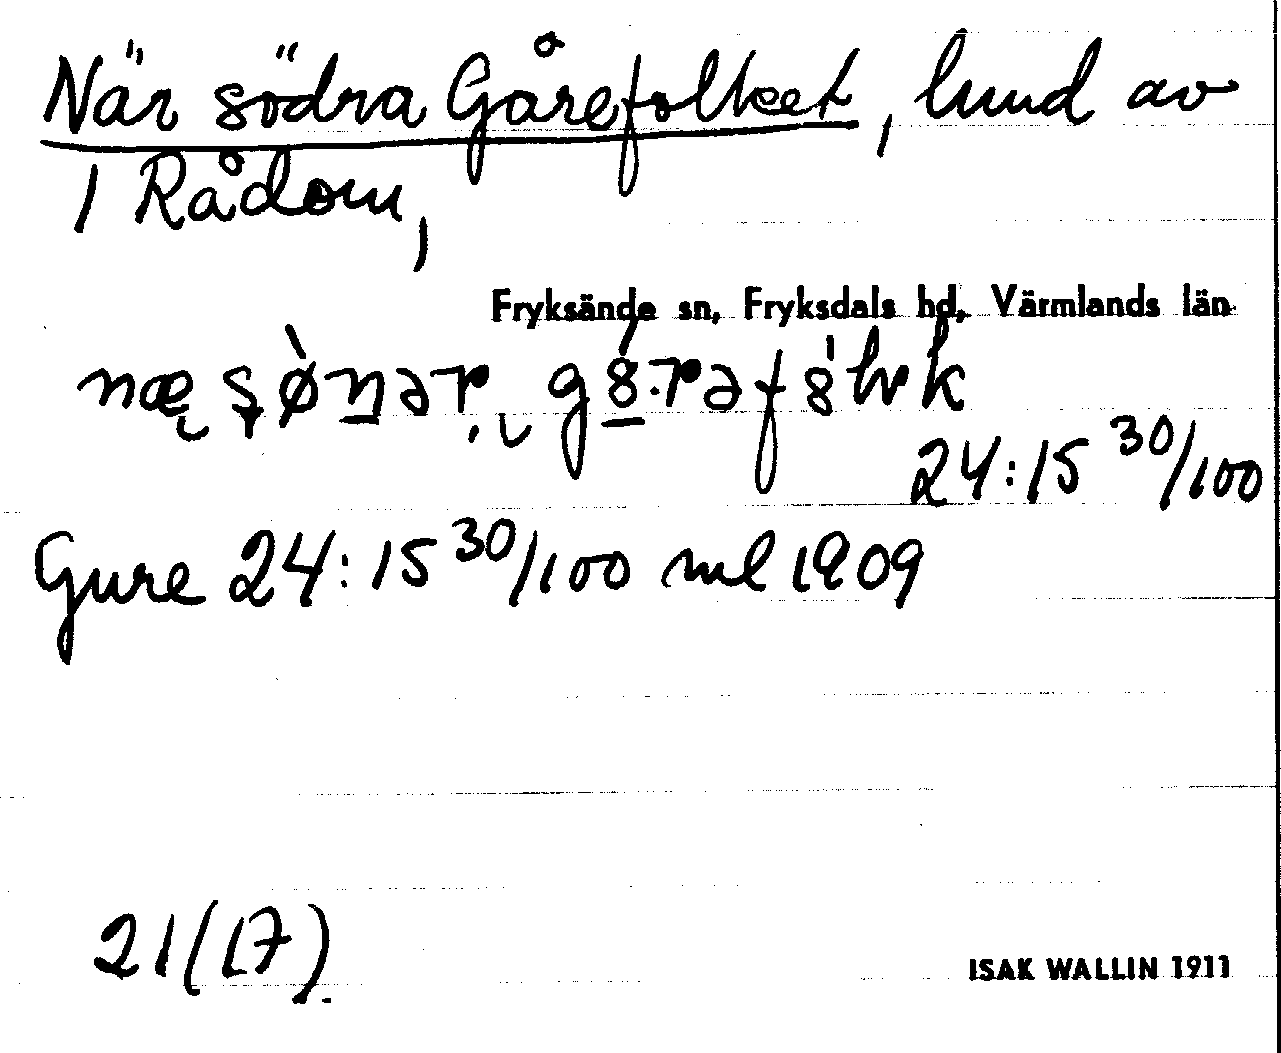 När södra Gårefolket, lund av
1 Rådom,
Fryksände sn, Fryksdals hd, Värmlands län
24:15 30/100
Gure 24:15 30/100 ml 1909
21(17).
ISAK WALLIN 1911